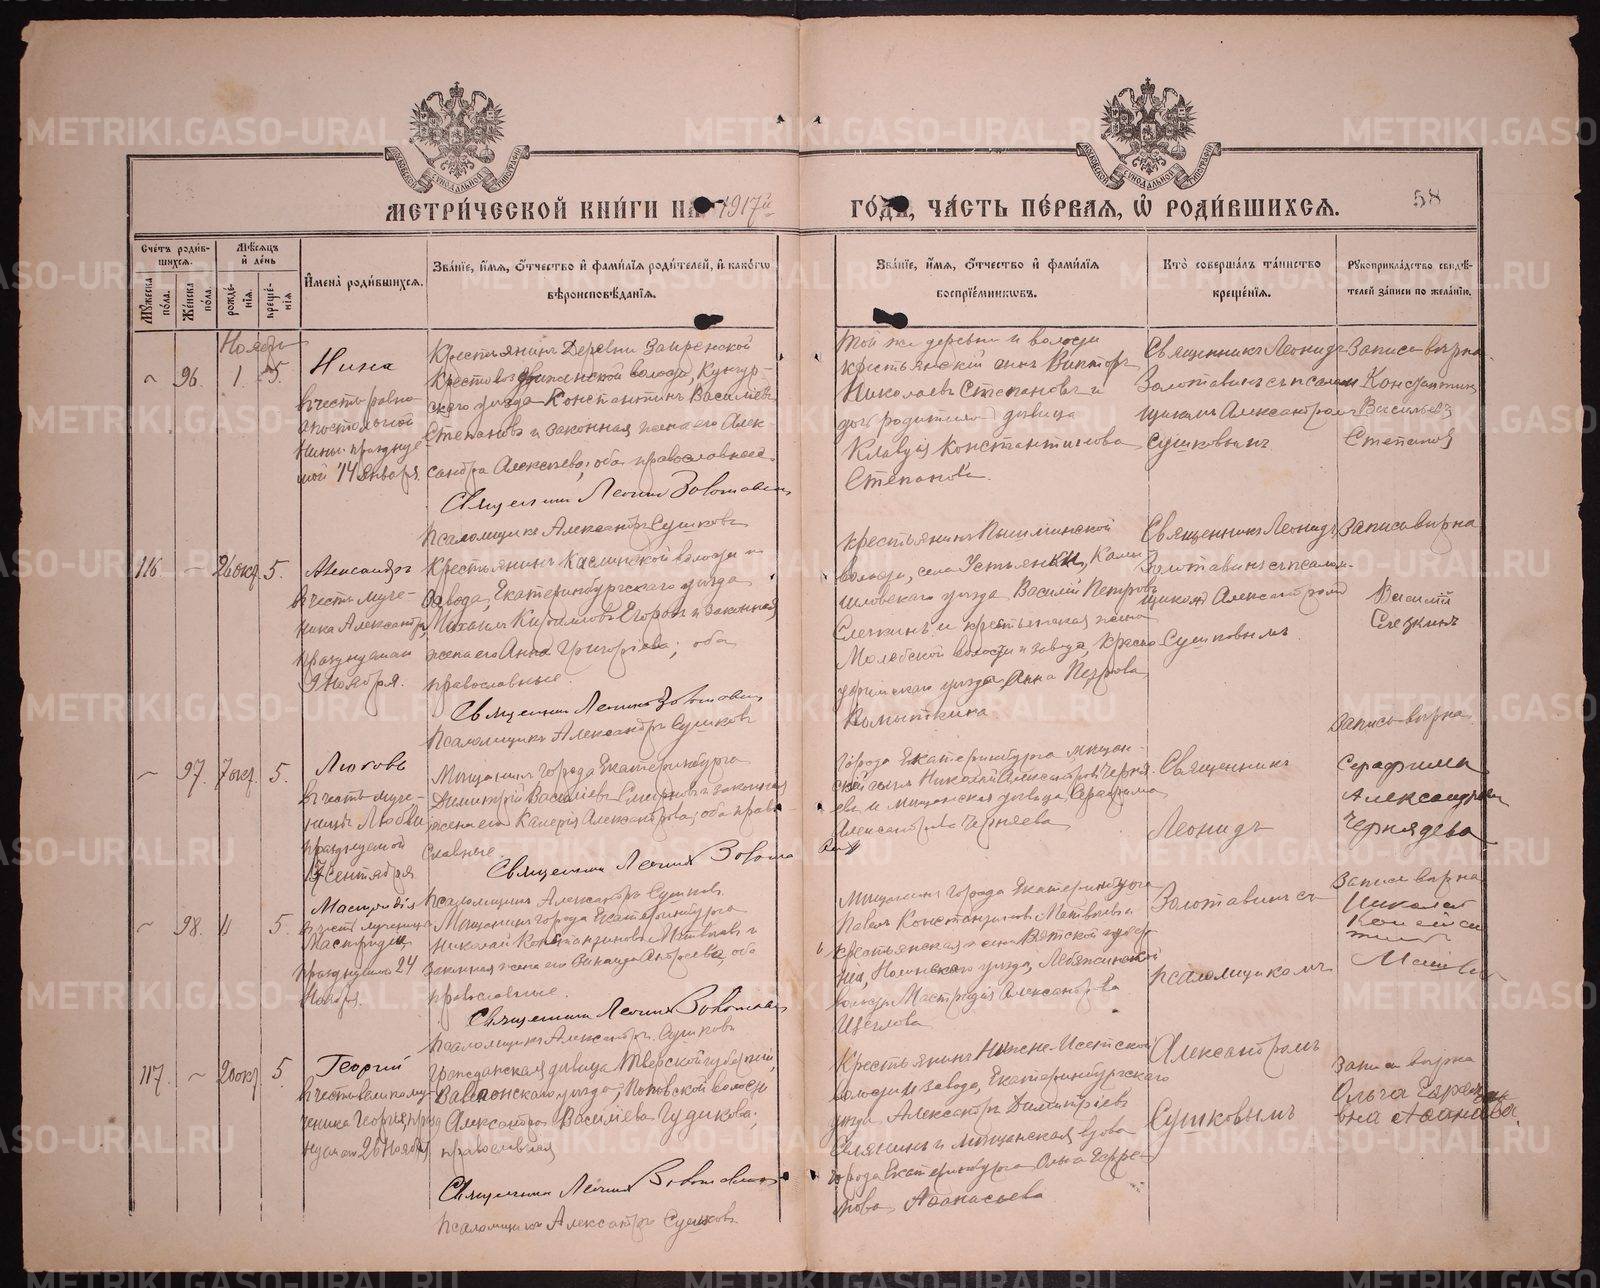 МЕТРИЧЕСКОЙ КНИГИ НА 1917й ГОДЪ, ЧАСТЬ ПЕРВАЯ, Ѡ РОДИВШИХСЯ.
58
Счетъ родившихся.
Мужеска пола.
Женска пола.
Мѣсяцъ и день
рожденія.
крещенія
Имена родившихся.
Званіе, имя, отчество и фамилія родителей, и какого
вѣроисповѣданія.
Званіе, имя, отчество и фамилія
воспріемниковъ.
Кто совершалъ таинство
крещенія.
Рукоприкладство свидѣтелей записи по желанію.
Ноябрь
96. 1. 5.
Нина
въ честь равно
апостольной
Нины праздну
мой 14 января.
Крестьянинъ Деревни
Крестовоздвиженской волости, Кунгур-
скаго уѣзда Константинъ Василіевъ
Степановъ и законная жена его Алек-
сандра Алексѣева, оба православные.
Священникъ Леонидъ Золотавинъ
Псаломщикъ Александръ Сушковъ
Той же деревни и волости
крестьянскій сынъ Викторъ
Николаевъ Степановъ и
дочь родителей дѣвица
Клавдія Константинова
Степанова.
Священникъ Леонидъ
Золотавинъ съ псалом
щикомъ Александромъ
Сушковымъ
Запись вѣрна
Константинъ
Васильевъ
Степанов
116 - 26 окт 5.
Александръ
въ честь муче-
ника Александра
празднуеман
9 ноября.
Крестьянинъ Каслинской волости и
завода, Екатеринбургскаго уѣзда
Михаилъ Кирилловъ Егоровъ и законная
жена его Анна Григоріева; оба
православные.
Священникъ Леонидъ Золотавинъ
Псаломщикъ Александръ Сушковъ
Крестьянинъ Пышминской
волости, села Устьянки, Камы
шловскаго уѣзда Василій Петровъ
Слечкинъ и крестьянская жена
Молебской волости и завода, Красно
уфимскаго уѣзда Анна Петрова
Священникъ Леонидъ
Золотавинъ съ псалом-
щикомъ Александромъ
Сушковымъ.
Запись вѣрна
Василій
97. 7 окт. 5.
Любовь
въ честь муче-
ницы Любви
празднуемой
17 сентября
Мѣщанинъ города Екатеринбурга
Димитрій Василіевъ Смирновъ и законная
жена его Калерія Александрова; оба право
славные.
Священникъ Леонидъ Золота
Псаломщикъ Александръ Сушковъ
Города Екатеринбурга мѣщан-
скій сынъ Николай Александровъ Черня
евъ и мѣщанская дѣвица Серафима
Александрова Черняева
Священникъ
Леонидъ
Запись вѣрна
Серафима
Александровна
98. 11 5.
Мастридія
въ честь мученицы
Мастридіи
празднуемой 24
Ноября.
Мѣщанинъ города Екатеринбурга
Николай Константиновъ Матвѣевъ и
законная жена его Андреева, оба
православные.
Священникъ Леонидъ Золотавинъ
Псаломщикъ Александръ Сушковъ
Мѣщанинъ города Екатеринбурга
Павелъ Константиновъ Матвѣевъ и
крестьянская жена Вятской губер
ніи, Нолинскаго уѣзда, Лебяжинской
волости Мастридія Александрова
Щеглова
Золотавинъ съ
псаломщикомъ
Запись вѣрна
Николай
117. ~ 20 окт 5.
Георгій
въ честь великому-
ченика Георгія, празд
нуеман 26 Ноября
Гражданская дѣвица Тверской губерніи,
уѣзда, Поповской волости
Александра Василіева Гудикова;
православная
Священникъ Леонидъ Золотавинъ
Псаломщикъ Александръ Сушковъ
Крестьянинъ Нижне-Исетской
волости и завода, Екатеринбургскаго
уѣзда Александръ Димитріевъ
и мѣщанская вдова
города Екатеринбурга Ольга
Аѳанасьева
Александромъ
Сушковымъ
Запись вѣрна
Ольга